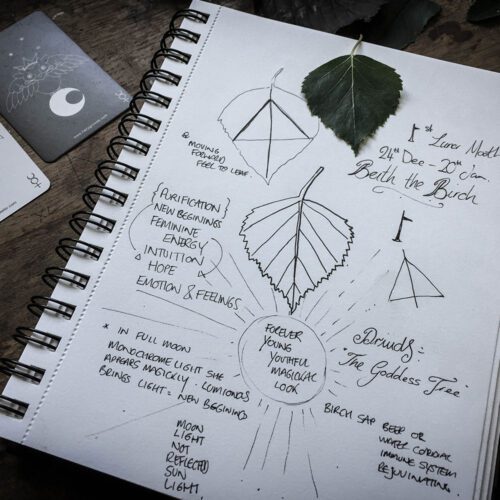 1st Lunar Month
24th Dec - 20th Jan.
Beith the Birch
MOVING
FORWARD
FEEL TO LEAVE.
{PURIFICATION}
NEW BEGININGS
FEMININE
ENERGY
INTUITION
HOPE
EMOTION & FEELINGS
* IN FULL MOON
MONOCHROME LIGHT SHE
APPEARS MAGICKLY - LUMIONOUS
BRINGS LIGHT = NEW BEGINING
MOON
LIGHT
NOT
REFLECTED
SUN
LIGHT
FOREVER
YOUNG
YOUTHFUL
MAGICKAL
LOOK
Druids =
"The Goddess Tree"
BIRCH SAP BEER OR
WATER CORDIAL
IMMUNE SYSTEM
REJUVINATING